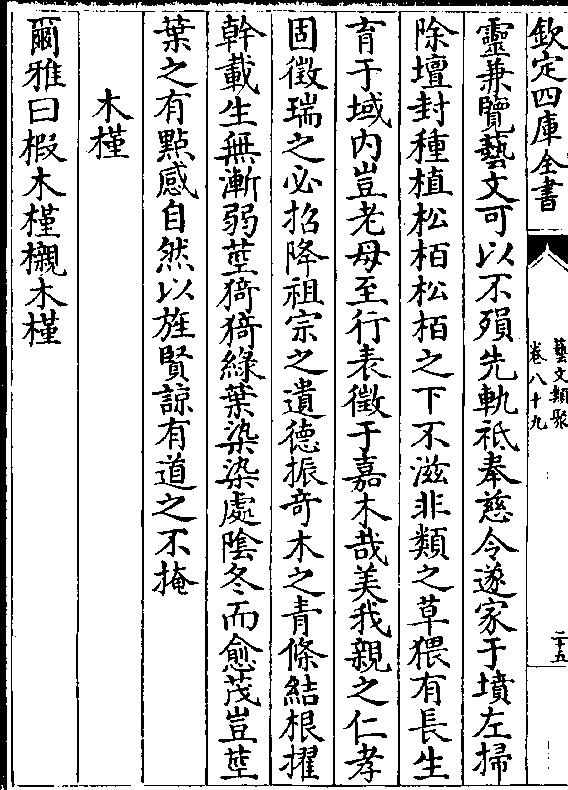 欽定四庫全書
藝文類聚
卷八十九
二十五
靈兼覽藝文可以不殞先軌祇奉慈令遂家于墳左掃
除壇封種植松栢松栢之下不滋非類之草猥有長生
育于域内豈老母至行表徵于嘉木哉美我親之仁孝
固徵瑞之必招降祖宗之遺德振奇木之青條結根擢
幹載生無漸弱莖猗猗綠葉染染處陰冬而愈茂豈莖
葉之有點感自然以旌賢諒有道之不掩
木槿
爾雅曰椴木槿櫬木槿